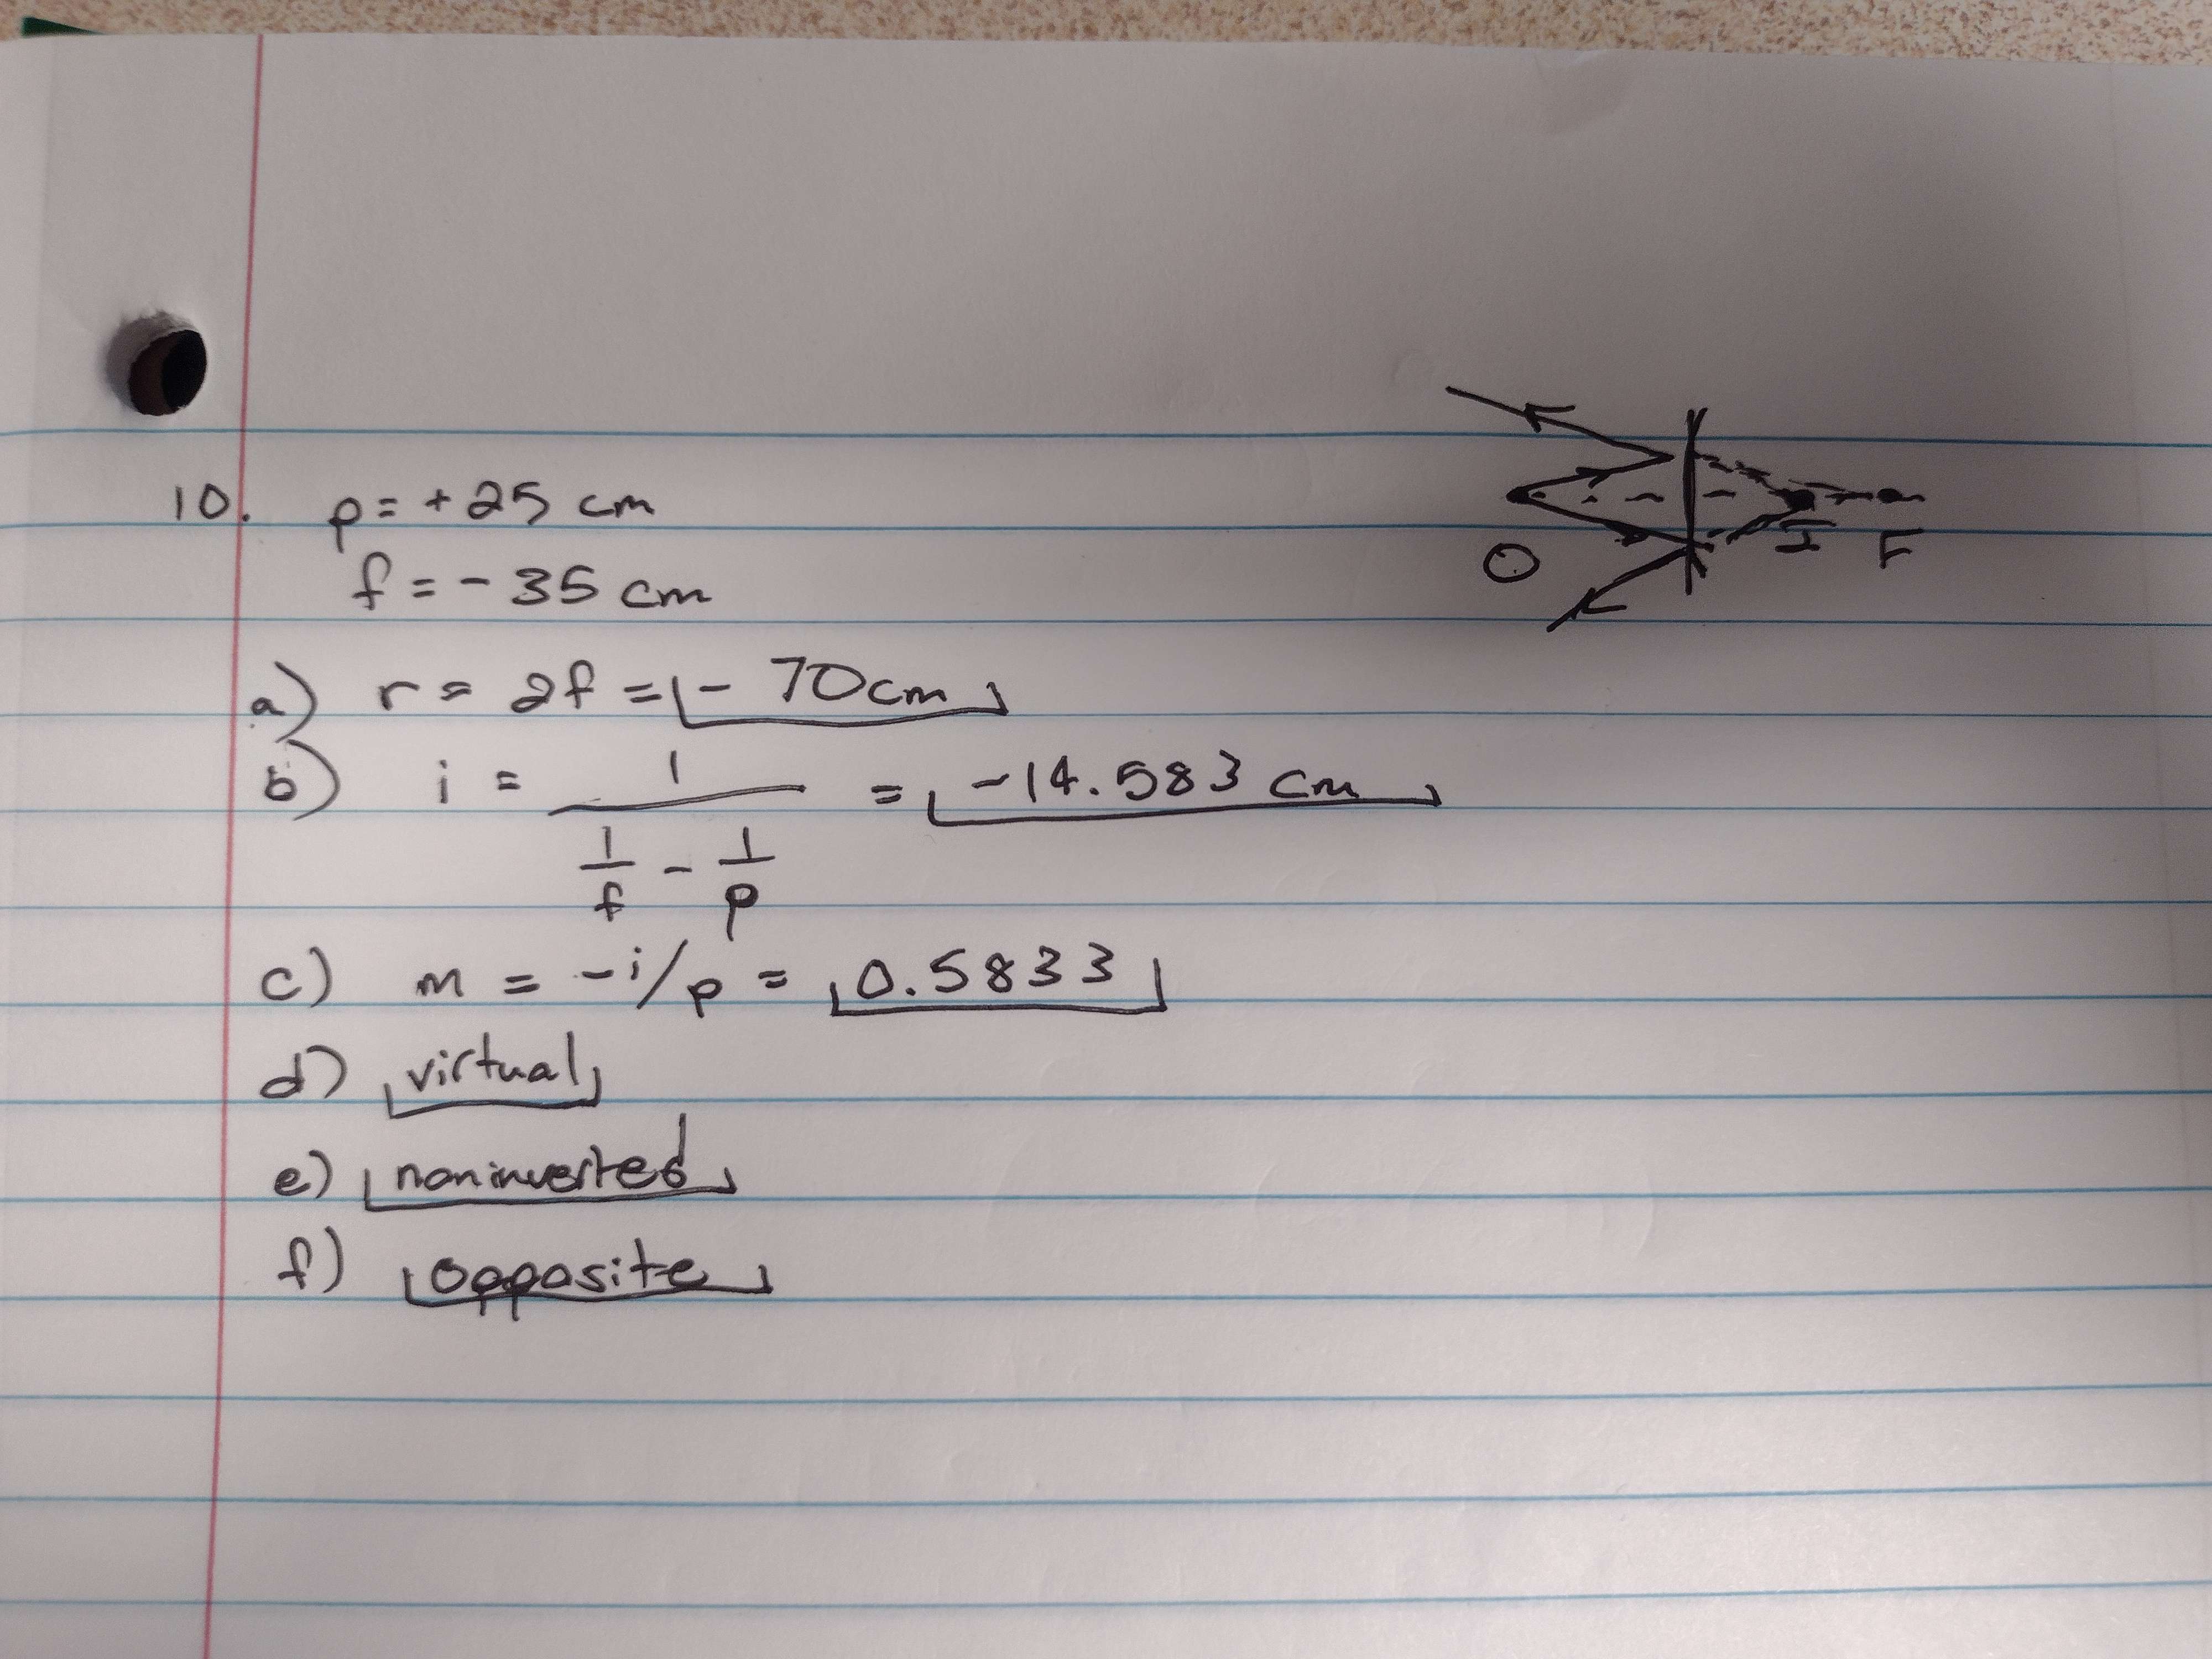 10. p = +25 cm
f = -35 cm
O I F
a) r = 2f = -70cm
b) i = 1 / (1/f - 1/p) = -14.583 cm
c) m = -i/p = 0.5833
d) virtual
e) noninverted
f) opposite